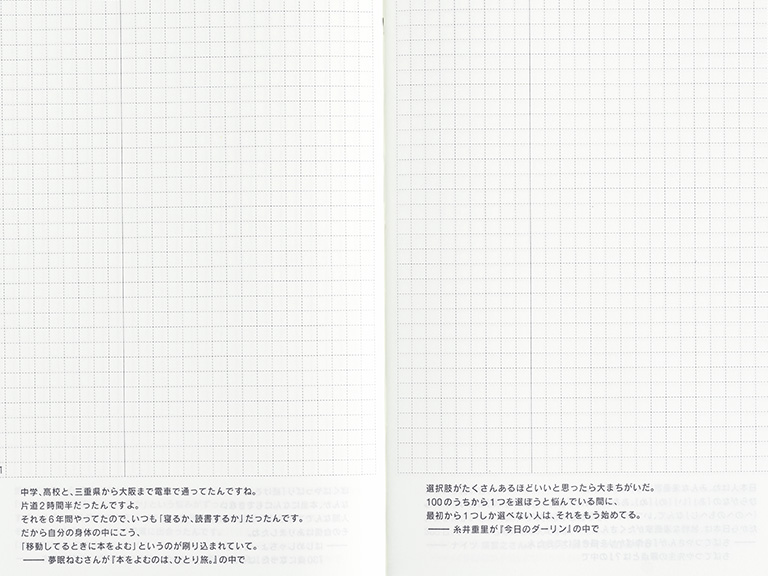 1
中学、高校と、三重県から大阪まで電車で通ってたんですね。
片道2時間半だったんですよ。
それを6年間やってたので、いつも「寝るか、読書するか」だったんです。
だから自分の身体の中にこう、
「移動してるときに本をよむ」というのが刷り込まれていて。
―― 夢眠ねむさんが『本をよむのは、ひとり旅。』の中で
選択肢がたくさんあるほどいいと思ったら大まちがいだ。
100のうちから1つを選ぼうと悩んでいる間に、
最初から1つしか選べない人は、それをもう始めてる。
―― 糸井重里が『今日のダーリン』の中で